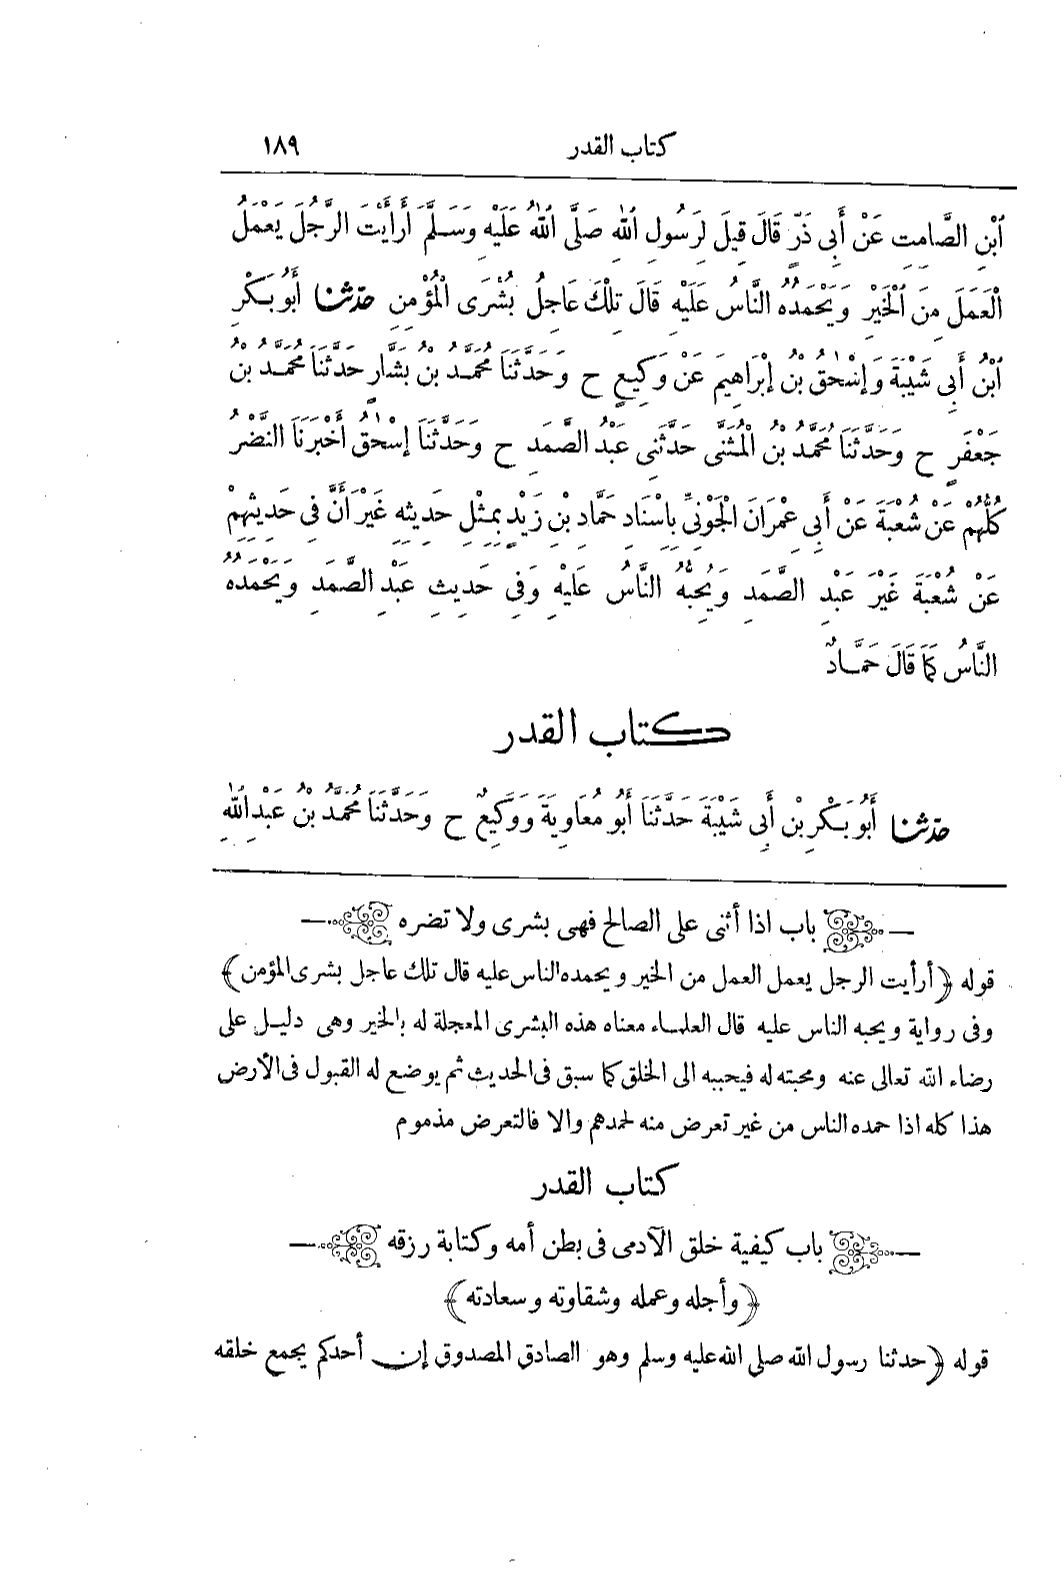 كتاب القدر ١٨٩
ٱبْنِ الصَّامِتِ عَنْ أَبِى ذَرٍّ قَالَ قِيلَ لِرَسُولِ ٱللهِ صَلَّى ٱللهُ عَلَيْهِ وَسَلَّمَ أَرَأَيْتَ الرَّجُلَ يَعْمَلُ
الْعَمَلَ مِنَ ٱلْخَيْرِ وَيَحْمَدُهُ النَّاسُ عَلَيْهِ قَالَ تِلْكَ عَاجِلُ بُشْرَى الْمُؤْمِنِ حدثنا أَبُو بَكْرِ
ٱبْنُ أَبِى شَيْبَةَ وَإِسْحٰقُ بْنُ إِبْرَاهِيمَ عَنْ وَكِيعٍ ح وَحَدَّثَنَا مُحَمَّدُ بْنُ بَشَّارٍ حَدَّثَنَا مُحَمَّدُ بْنُ
جَعْفَرٍ ح وَحَدَّثَنَا مُحَمَّدُ بْنُ الْمُثَنَّى حَدَّثَنِى عَبْدُ الصَّمَدِ ح وَحَدَّثَنَا إِسْحٰقُ أَخْبَرَنَا النَّضْرُ
كُلُّهُمْ عَنْ شُعْبَةَ عَنْ أَبِى عِمْرَانَ الْجَوْنِىِّ بِاسْنَادِ حَمَّادِ بْنِ زَيْدٍ بِمِثْلِ حَدِيثِهِ غَيْرَ أَنَّ فِى حَدِيثِهِمْ
عَنْ شُعْبَةَ غَيْرَ عَبْدِ الصَّمَدِ وَيُحِبُّهُ النَّاسُ عَلَيْهِ وَفِى حَدِيثِ عَبْدِ الصَّمَدِ وَيَحْمَدُهُ
النَّاسُ كَمَا قَالَ حَمَّادٌ
كتاب القدر
حدثنا أَبُو بَكْرِ بْنُ أَبِى شَيْبَةَ حَدَّثَنَا أَبُو مُعَاوِيَةَ وَوَكِيعٌ ح وَحَدَّثَنَا مُحَمَّدُ بْنُ عَبْدِ اللّٰهِ
باب اذا أثنى على الصالح فهى بشرى ولا تضره
قوله ﴿أرأيت الرجل يعمل العمل من الخير ويحمده الناس عليه قال تلك عاجل بشرى المؤمن﴾
وفى رواية ويحبه الناس عليه قال العلماء معناه هذه البشرى المعجلة له بالخير وهى دليل على
رضاء الله تعالى عنه ومحبته له فيحببه الى الخلق كما سبق فى الحديث ثم يوضع له القبول فى الأرض
هذا كله اذا حمده الناس من غير تعرض منه لحمدهم والا فالتعرض مذموم
كتاب القدر
باب كيفية خلق الآدمى فى بطن أمه وكتابة رزقه
﴿وأجله وعمله وشقاوته وسعادته﴾
قوله ﴿حدثنا رسول الله صلى الله عليه وسلم وهو الصادق المصدوق إن أحدكم يجمع خلقه